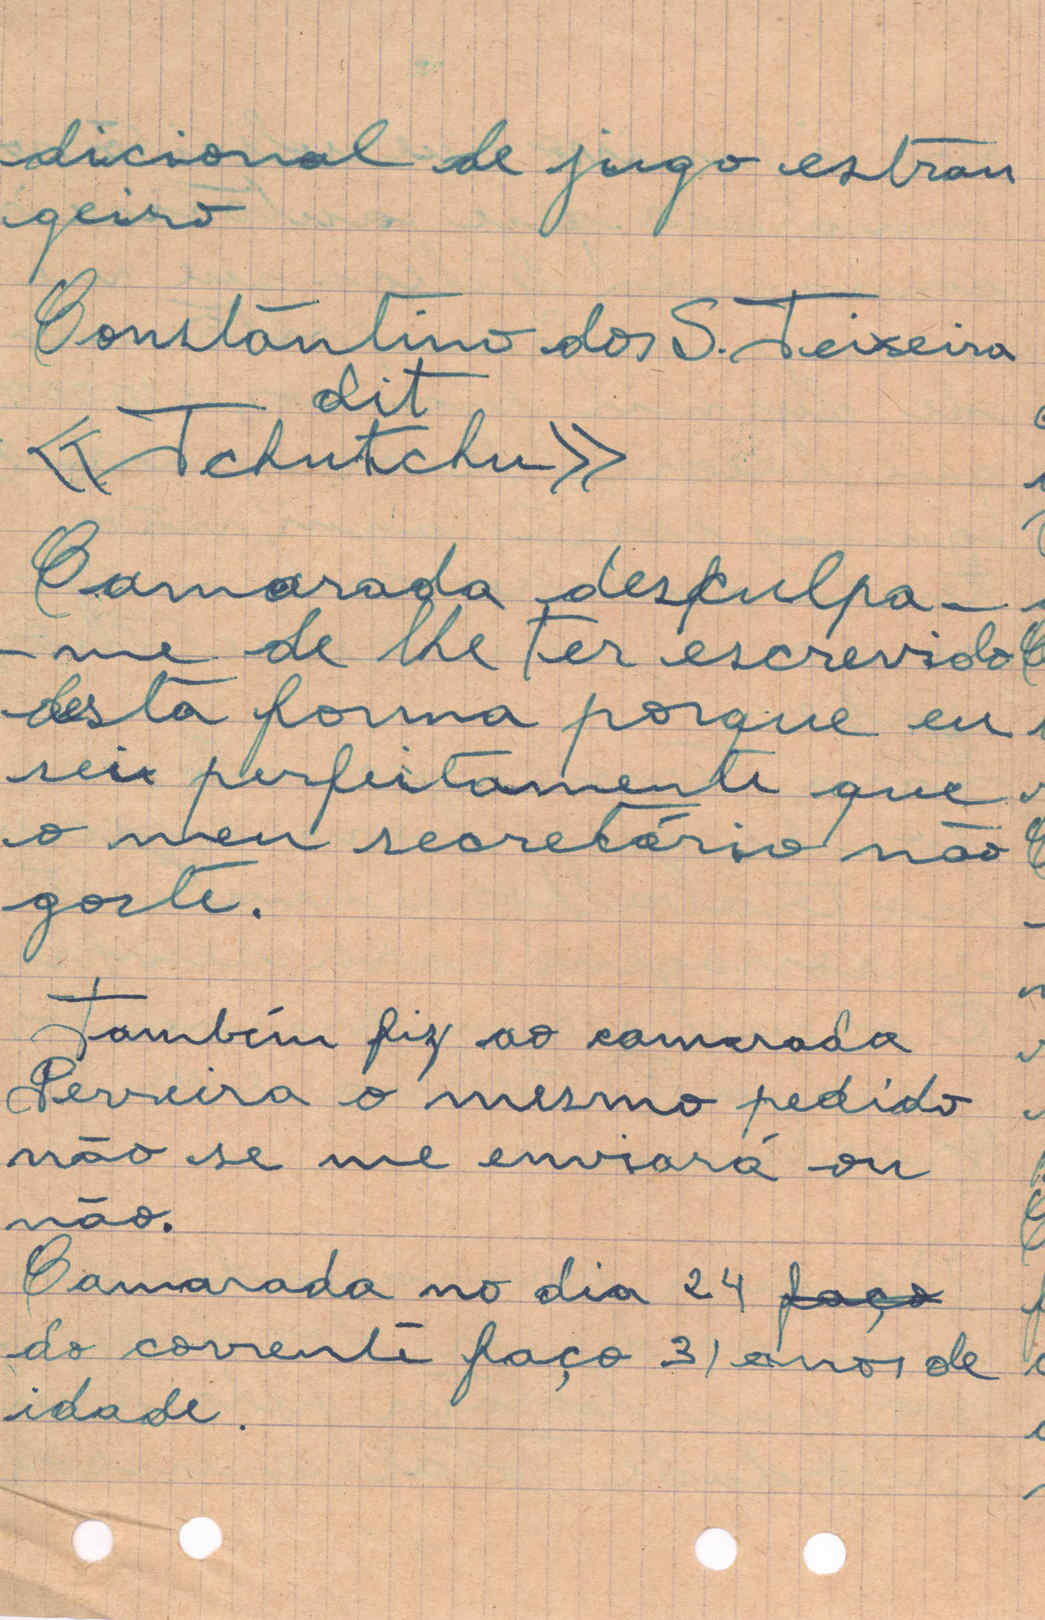 dicional de jugo estran
geiro
Constântino dos S. Teixeira
dit
«Tchutchu»
Camarada desculpa-
-me de lhe ter escrevido
desta forma porque eu
sei perfeitamente que
o meu secretário não
goste.
Também fiz ao camarada
Perreira o mesmo pedido
não se me enviará ou
não.
Camarada no dia 24 faço
do corrente faço 31 anos de
idade.